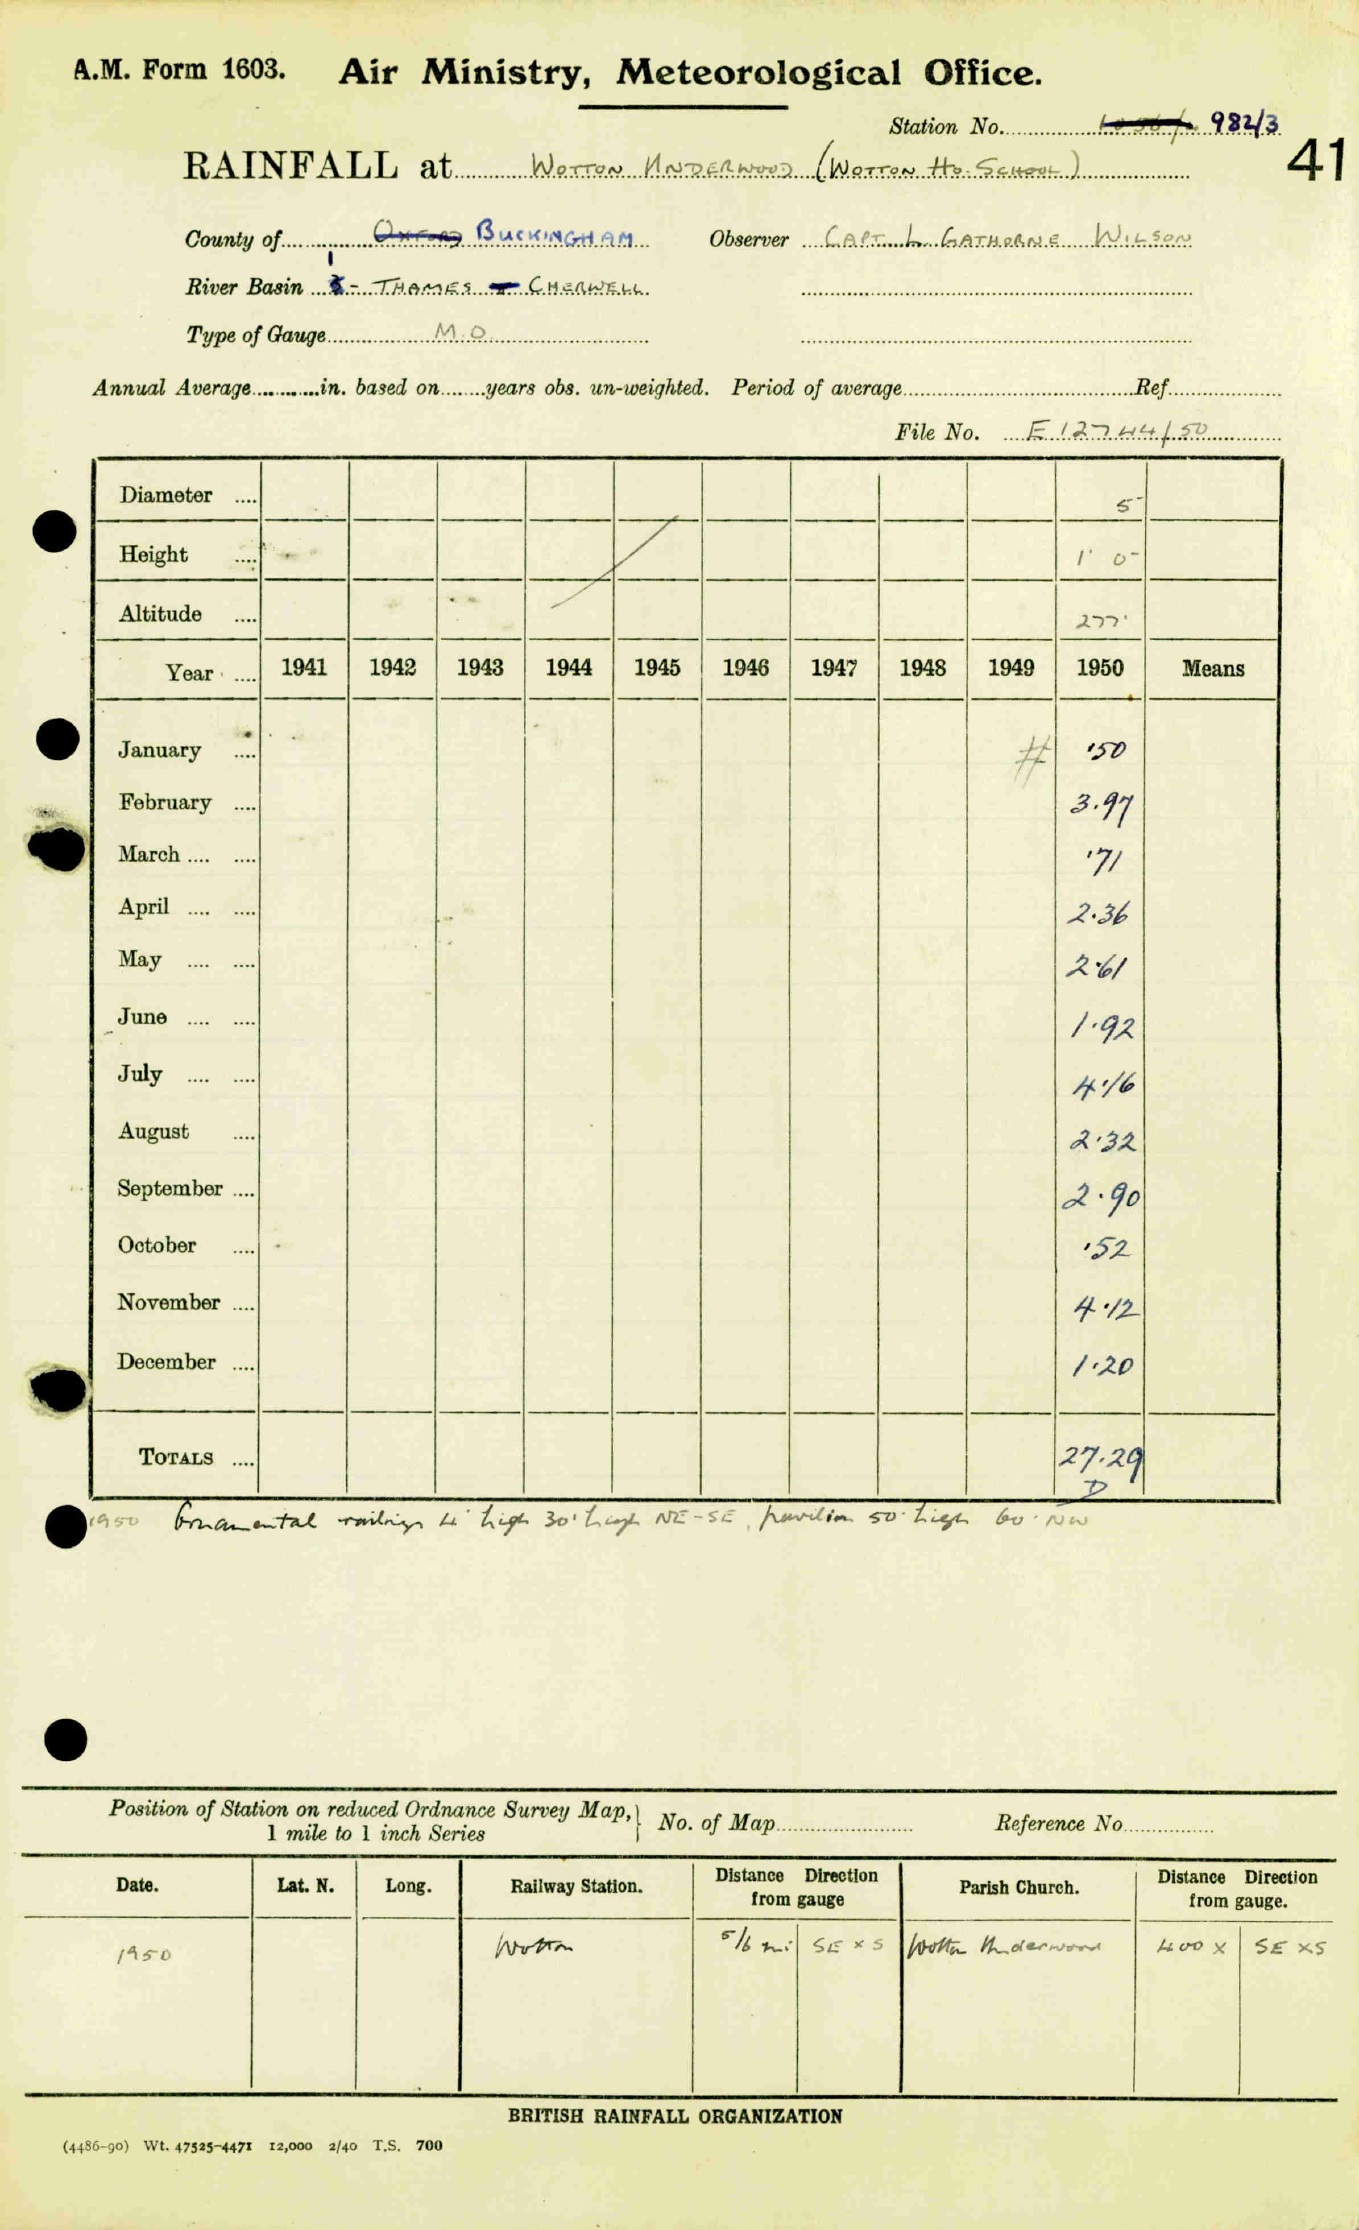 A.M. Form 1603. Air Ministry, Meteorological Office.
Station No. 982/3
41
RAINFALL at WOTTON UNDERWOOD (WOTTON HO. SCHOOL)
County of OXFORD BUCKINGHAM Observer CAPT. L. GATHORNE WILSON
River Basin 1 - THAMES CHERWELL
Type of Gauge M.O.
Annual Average in. based on years obs. un-weighted. Period of average Ref.
File No. E 12744/50
Diameter .... 5
Height .... 1' 0
Altitude .... 277'
Year .... 1941 1942 1943 1944 1945 1946 1947 1948 1949 1950 Means
January .... # ·50
February .... 3·97
March .... .... ·71
April .... .... 2·36
May .... .... 2·61
June .... .... 1·92
July .... .... 4·16
August .... 2·32
September .... 2·90
October .... ·52
November .... 4·12
December .... 1·20
TOTALS .... 27·29
D
1950 Ornamental railings 4' high 30' NE-SE, pavilion 50' high 60' NW
Position of Station on reduced Ordnance Survey Map,} No. of Map Reference No.
1 mile to 1 inch Series
Date. Lat. N. Long. Railway Station. Distance Direction from gauge Parish Church. Distance Direction from gauge.
1950 Wotton 5/6 mi SE x S Wotton Underwood 400 x SE x S
BRITISH RAINFALL ORGANIZATION
(4486-90) Wt. 47525-4471 12,000 2/40 T.S. 700